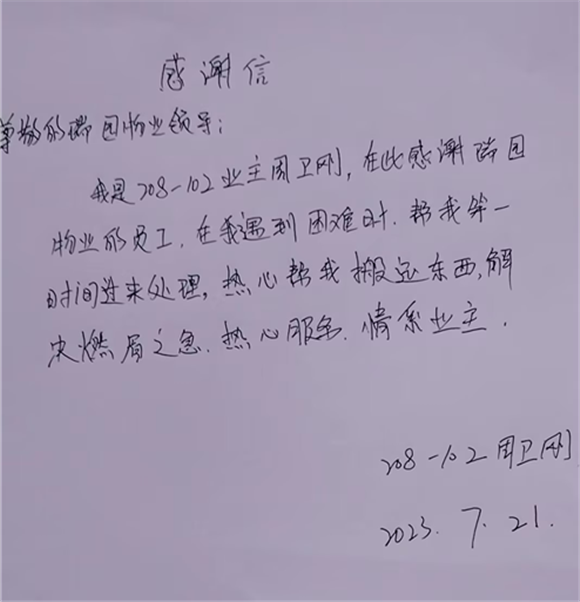 感谢信
尊敬的瑞园物业领导：
我是208-102业主周卫刚，在此感谢瑞园
物业的员工，在我遇到困难时，帮我第一
时间过来处理，热心帮我搬运东西，解
决燃眉之急．热心服务．情系业主．
208-102周卫刚
2023．7．21．